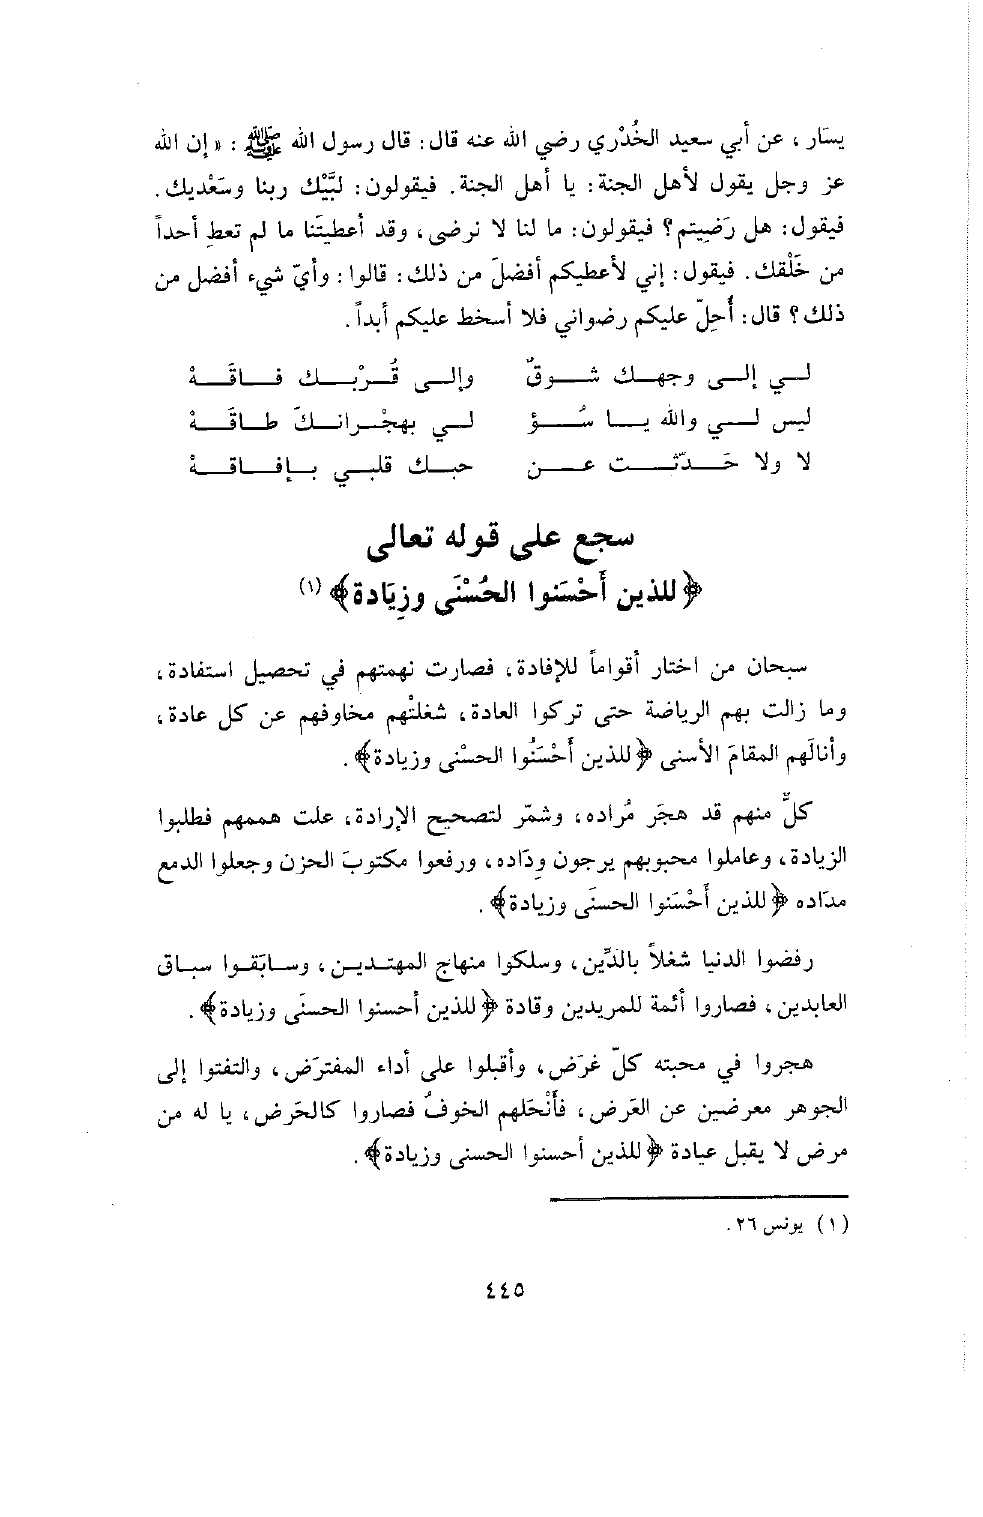 يسَار ، عن أبي سعيد الخُدْري رضي الله عنه قال : قال رسول الله ﷺ : « إن الله
عز وجل يقول لأهل الجنة : يا أهل الجنة . فيقولون : لبَّيْك ربنا وسَعْديك .
فيقول : هل رَضِيتم ؟ فيقولون : ما لنا لا نرضى ، وقد أعطيتَنا ما لم تعطِ أحداً
من خَلْقك . فيقول : إني لأعطيكم أفضلَ من ذلك : قالوا : وأيّ شيء أفضل من
ذلك ؟ قال : أُحِلّ عليكم رضواني فلا أسخط عليكم أبداً .
لــي إلــى وجهــك شــوقٌ وإلــى قُــرْبــك فــاقَــهْ
ليس لــي والله يــا سُــؤ لــي بهجْــرانــكَ طــاقَــهْ
لا ولا حَــدّثــت عــن حبــك قلبــي بــإفــاقــهْ
سجع على قوله تعالى
﴿ للذين أَحْسَنوا الحُسْنَى وزِيَادة ﴾ (١)
سبحان من اختار أقواماً للإفادة ، فصارت نهمتهم في تحصيل استفادة ،
وما زالت بهم الرياضة حتى تركوا العادة ، شغلتْهم مخاوفهم عن كل عادة ،
وأنالَهم المقامَ الأسنى ﴿ للذين أَحْسَنُوا الحسْنى وزيادة ﴾ .
كلٌّ منهم قد هجَر مُراده ، وشمّر لتصحيح الإرادة ، علت هممهم فطلبوا
الزيادة ، وعاملوا محبوبهم يرجون وِدَاده ، ورفعوا مكتوبَ الحزن وجعلوا الدمع
مدَاده ﴿ للذين أَحْسَنوا الحسنَى وزيادة ﴾ .
رفضوا الدنيا شغلاً بالدِّين ، وسلكوا منهاج المهتــديــن ، وســابَقــوا سبــاق
العابدين ، فصاروا أئمة للمريدين وقادة ﴿ للذين أحسنوا الحسنَى وزيادة ﴾ .
هجروا في محبته كلّ غرَض ، وأقبلوا على أداء المفترَض ، والتفتوا إلى
الجوهر معرضين عن العَرض ، فأنْحَلهم الخوفُ فصاروا كالحَرض ، يا له من
مرض لا يقبل عيادة ﴿ للذين أحسنوا الحسنى وزيادة ﴾ .
(١) يونس ٢٦ .
٤٤٥